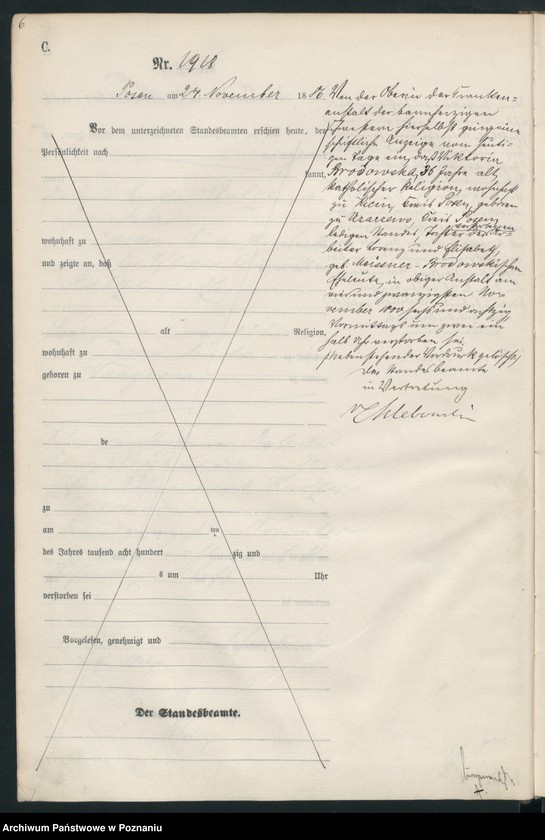 6
C.
Nr. 1918
Posen am 24 November 1886.
Vor dem unterzeichneten Standesbeamten erschien heute, der
Persönlichkeit nach
kannt,
wohnhaft zu
und zeigte an, daß
alt Religion,
wohnhaft zu
geboren zu
de
zu
am ten
des Jahres tausend acht hundert zig und
s um Uhr
verstorben sei
Vorgelesen, genehmigt und
Der Standesbeamte.
Von der Oberin der Kranken=
anstalt der barmherzigen
Schwestern hierselbst ging eine
schriftliche Anzeige vom heuti-
gen Tage ein, daß Viktoria
Brodowska, 36 Jahre alt,
katholischer Religion, wohnhaft
zu Kicin, Kreis Posen, geboren
zu Kreis Posen,
ledigen Standes, Tochter der verstorbenen Ar=
beiter Lorenz und Elisabeth,
geb. Meissner-Brodowskischen
Eheleute, in obiger Anstalt am
vier und zwanzigsten No=
vember 1800 sechs und achtzig
Vormittags um zwei ein
halb Uhr verstorben sei.
Nebenstehender Vordruck gelöscht.
Der Standesbeamte
in Vertretung
Archiwum Państwowe w Poznaniu